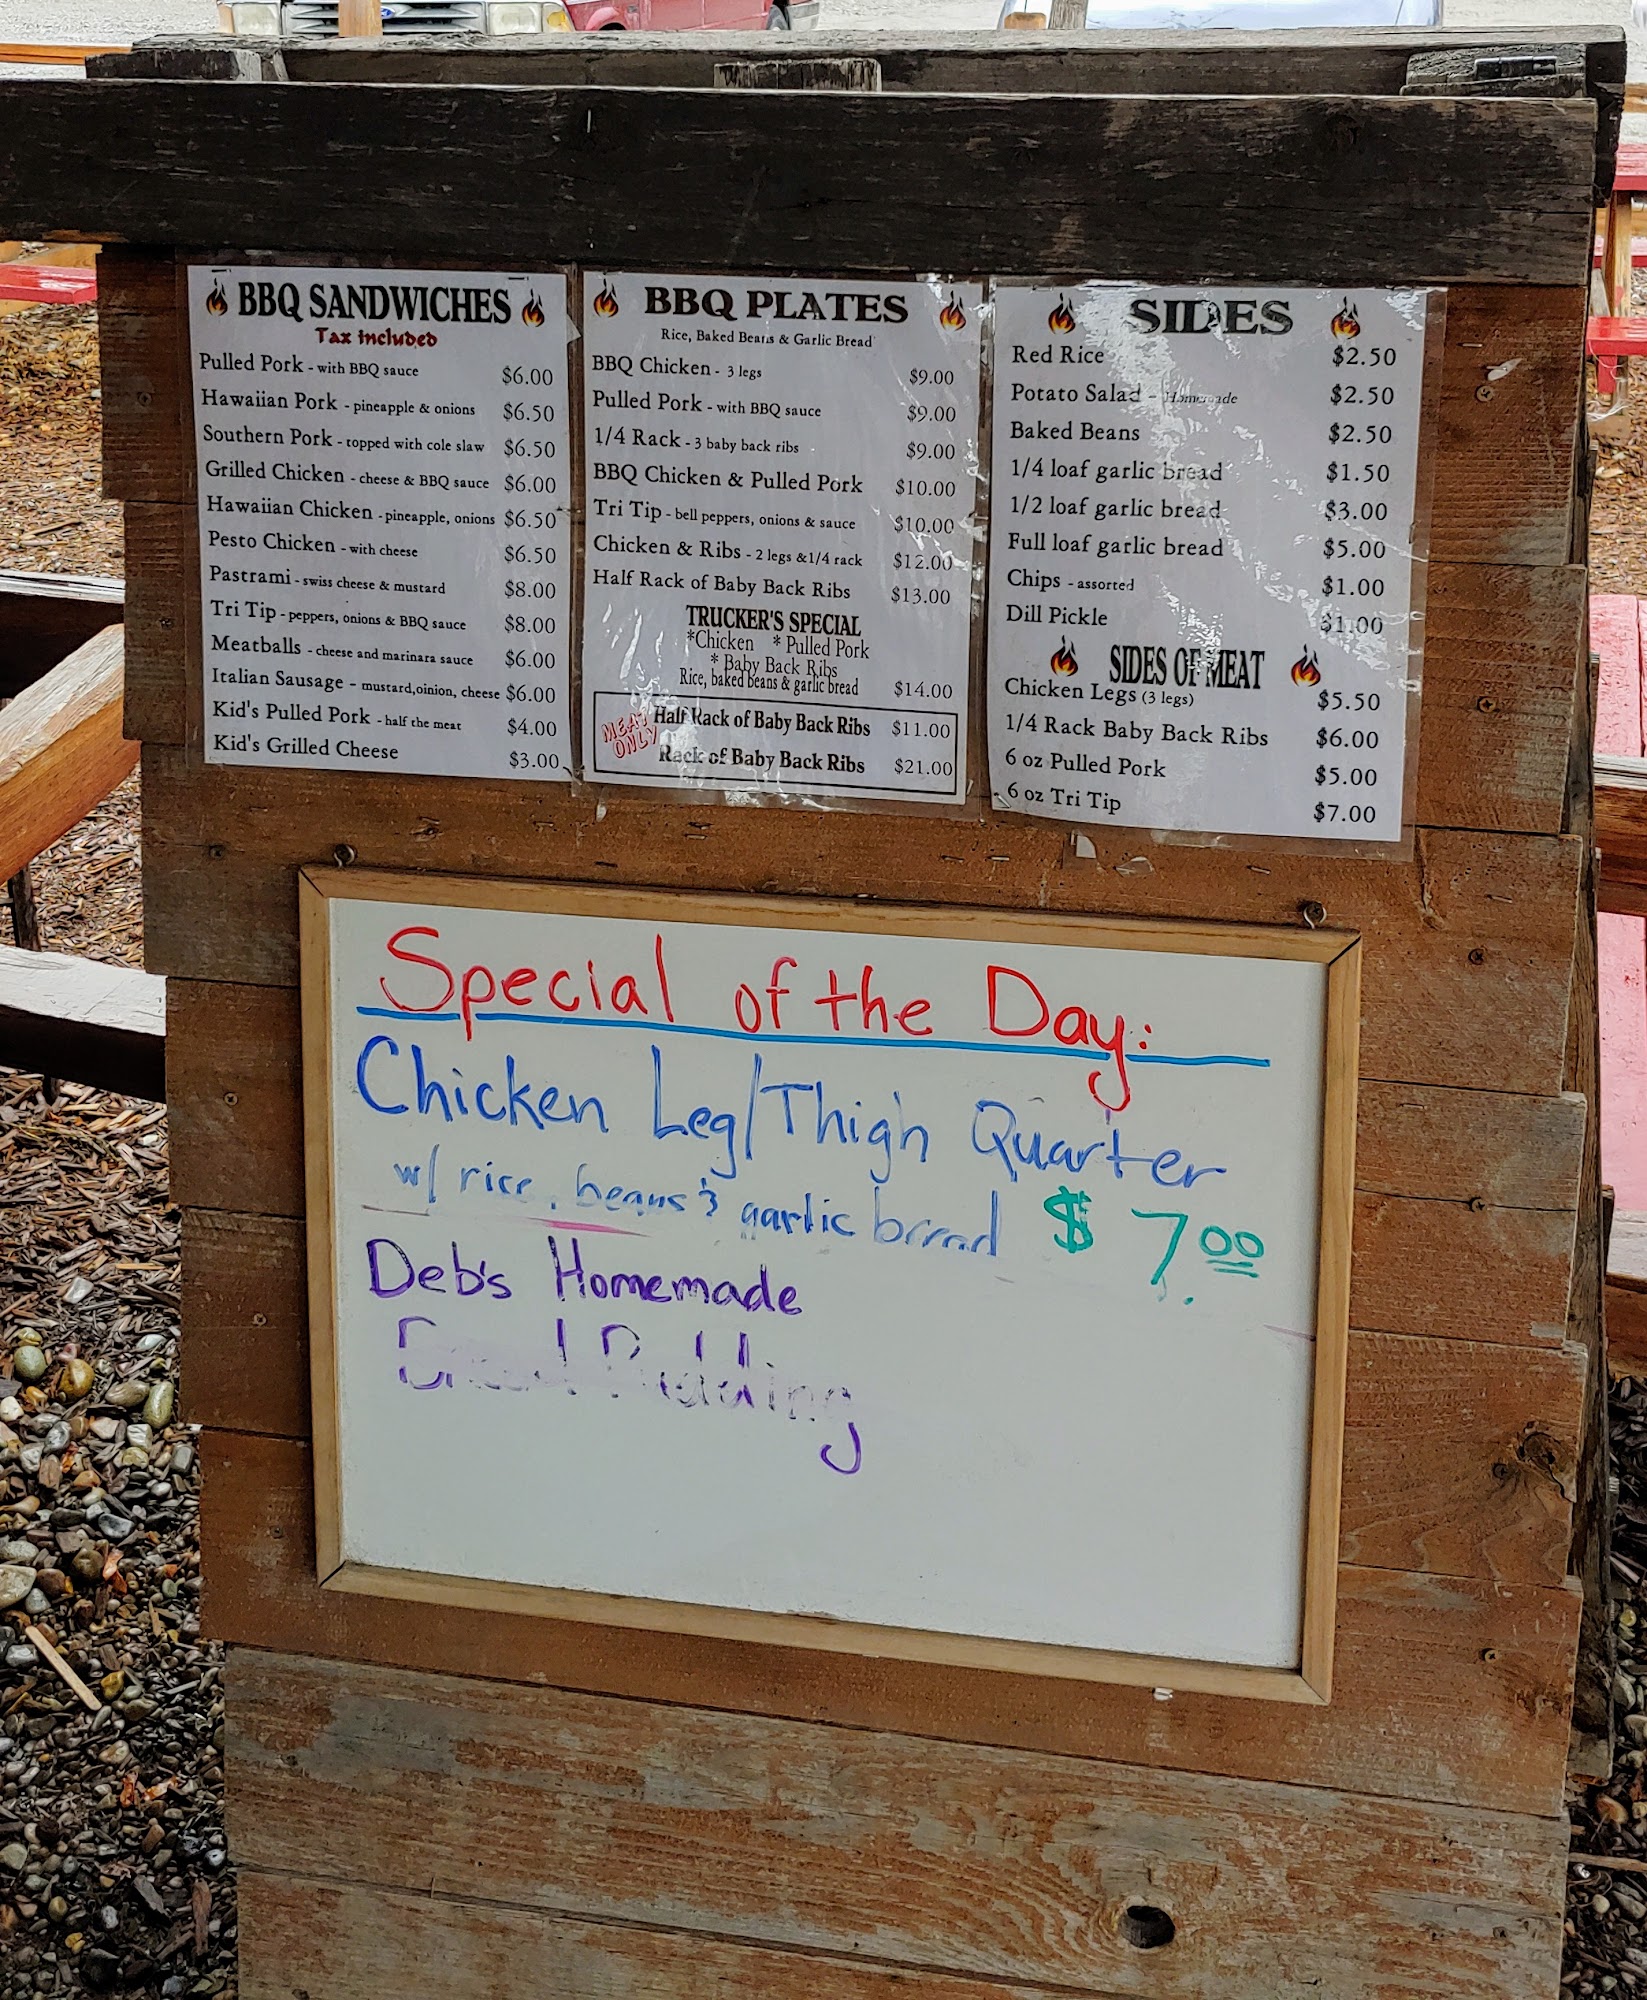 BBQ SANDWICHES
Tax included
Pulled Pork - with BBQ sauce $6.00
Hawaiian Pork - pineapple & onions $6.50
Southern Pork - topped with cole slaw $6.50
Grilled Chicken - cheese & BBQ sauce $6.00
Hawaiian Chicken - pineapple, onions $6.50
Pesto Chicken - with cheese $6.50
Pastrami - swiss cheese & mustard $8.00
Tri Tip - peppers, onions & BBQ sauce $8.00
Meatballs - cheese and marinara sauce $6.00
Italian Sausage - mustard,oinion, cheese $6.00
Kid's Pulled Pork - half the meat $4.00
Kid's Grilled Cheese $3.00
BBQ PLATES
Rice, Baked Beans & Garlic Bread
BBQ Chicken - 3 legs $9.00
Pulled Pork - with BBQ sauce $9.00
1/4 Rack - 3 baby back ribs $9.00
BBQ Chicken & Pulled Pork $10.00
Tri Tip - bell peppers, onions & sauce $10.00
Chicken & Ribs - 2 legs &1/4 rack $12.00
Half Rack of Baby Back Ribs $13.00
TRUCKER'S SPECIAL
*Chicken * Pulled Pork
* Baby Back Ribs
Rice, baked beans & garlic bread $14.00
MEAT ONLY
Half Rack of Baby Back Ribs $11.00
Rack of Baby Back Ribs $21.00
SIDES
Red Rice $2.50
Potato Salad - Homemade $2.50
Baked Beans $2.50
1/4 loaf garlic bread $1.50
1/2 loaf garlic bread $3.00
Full loaf garlic bread $5.00
Chips - assorted $1.00
Dill Pickle $1.00
SIDES OF MEAT
Chicken Legs (3 legs) $5.50
1/4 Rack Baby Back Ribs $6.00
6 oz Pulled Pork $5.00
6 oz Tri Tip $7.00
Special of the Day:
Chicken Leg/Thigh Quarter
w/ rice, beans & garlic bread $7.00
Deb's Homemade
Bread Pudding